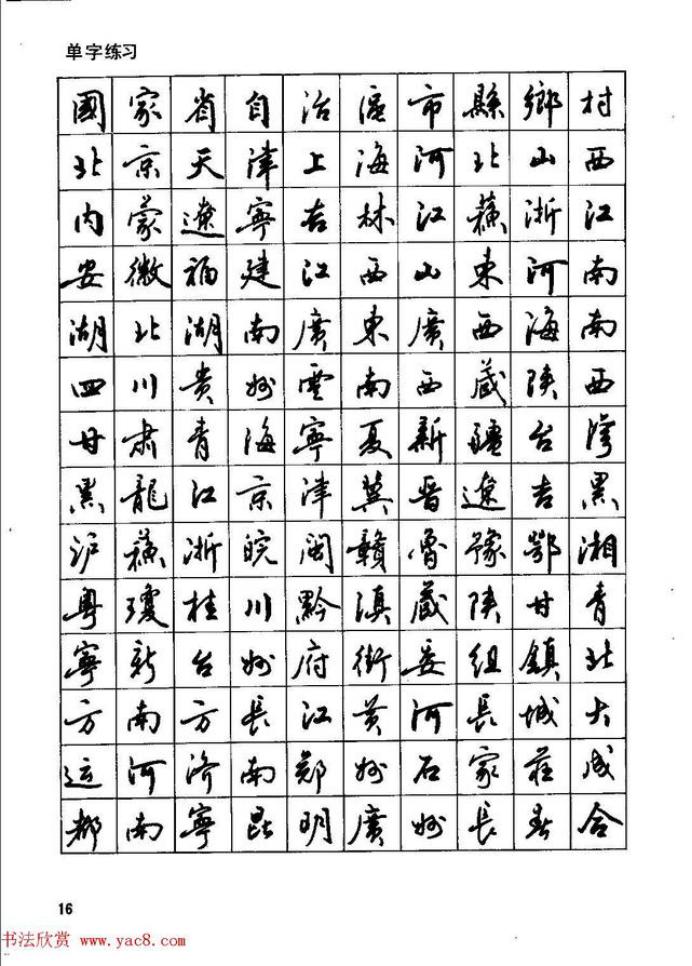 单字练习
國家省自治區市縣鄉村
北京天津上海河北山西
内蒙遼寧吉林江蘇浙江
安徽福建江西山東河南
湖北湖南廣東廣西海南
四川贵州雲南西藏陕西
甘肃青海寧夏新疆台湾
黑龍江京津冀晋遼吉黑
沪蘇浙皖闽贛鲁豫鄂湘
粤瓊桂川黔滇藏陕甘青
寧新台州府街委组鎮北
方南方長江黄河長城大
运河济南郑州石家莊成
都南寧昆明廣州長春合
16
书法欣赏 www.yac8.com